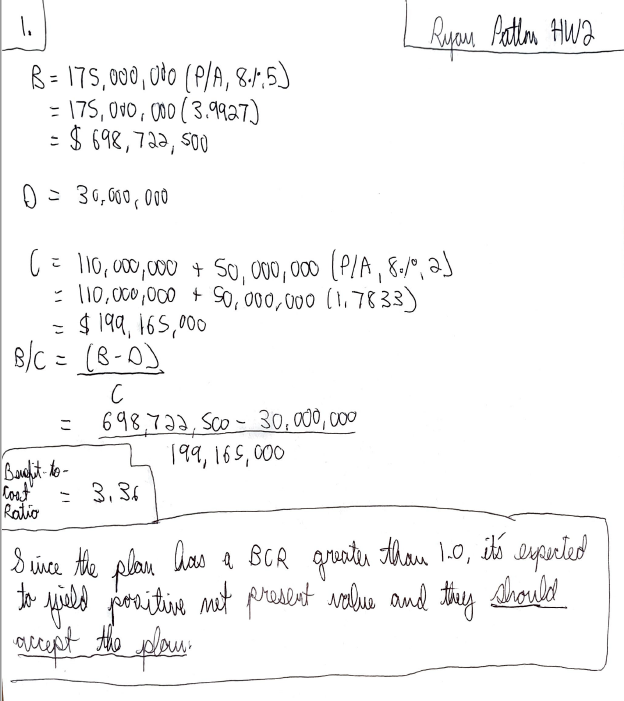 1.
Ryan Patlm HW2
B = 175,000,000 (P/A, 8%, 5)
= 175,000,000 (3.9927)
= $ 698,722,500
D = 30,000,000
C = 110,000,000 + 50,000,000 (P/A, 8%, 2)
= 110,000,000 + 50,000,000 (1.7833)
= $ 199,165,000
B/C = (B-D)
C
= 698,722,500 - 30,000,000
199,165,000
Benefit-to-
Cost
Ratio
= 3.36
Since the plan has a BCR greater than 1.0, it's expected
to yield positive net present value and they should
accept the plan.